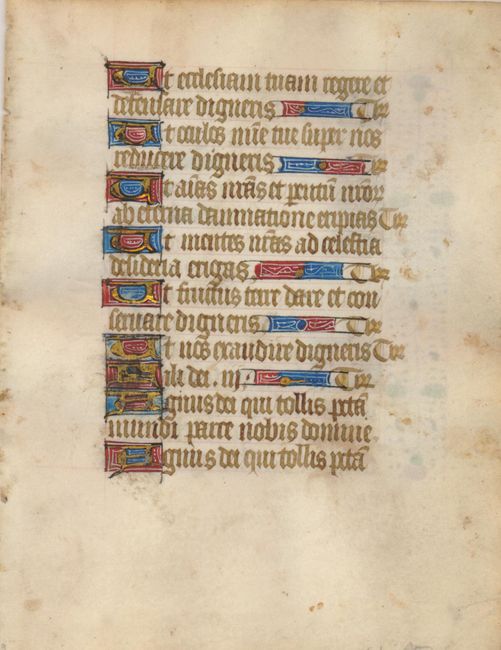 Ut ecclesiam tuam regere et
defensare digneris Te r
Ut oculos mie tue super nos
reducere digneris Te r
Ut aias nras et parentu nror
ab eterna damnatione eripias Te r
Ut mentes nras ad celestia
desideria erigas Te r
Ut fructus terre dare et con
servare digneris Te r
Ut nos exaudire digneris Te r
Fili dei. iij. Te r
Agnus dei qui tollis pcta
mundi parce nobis domine.
Agnus dei qui tollis pcta